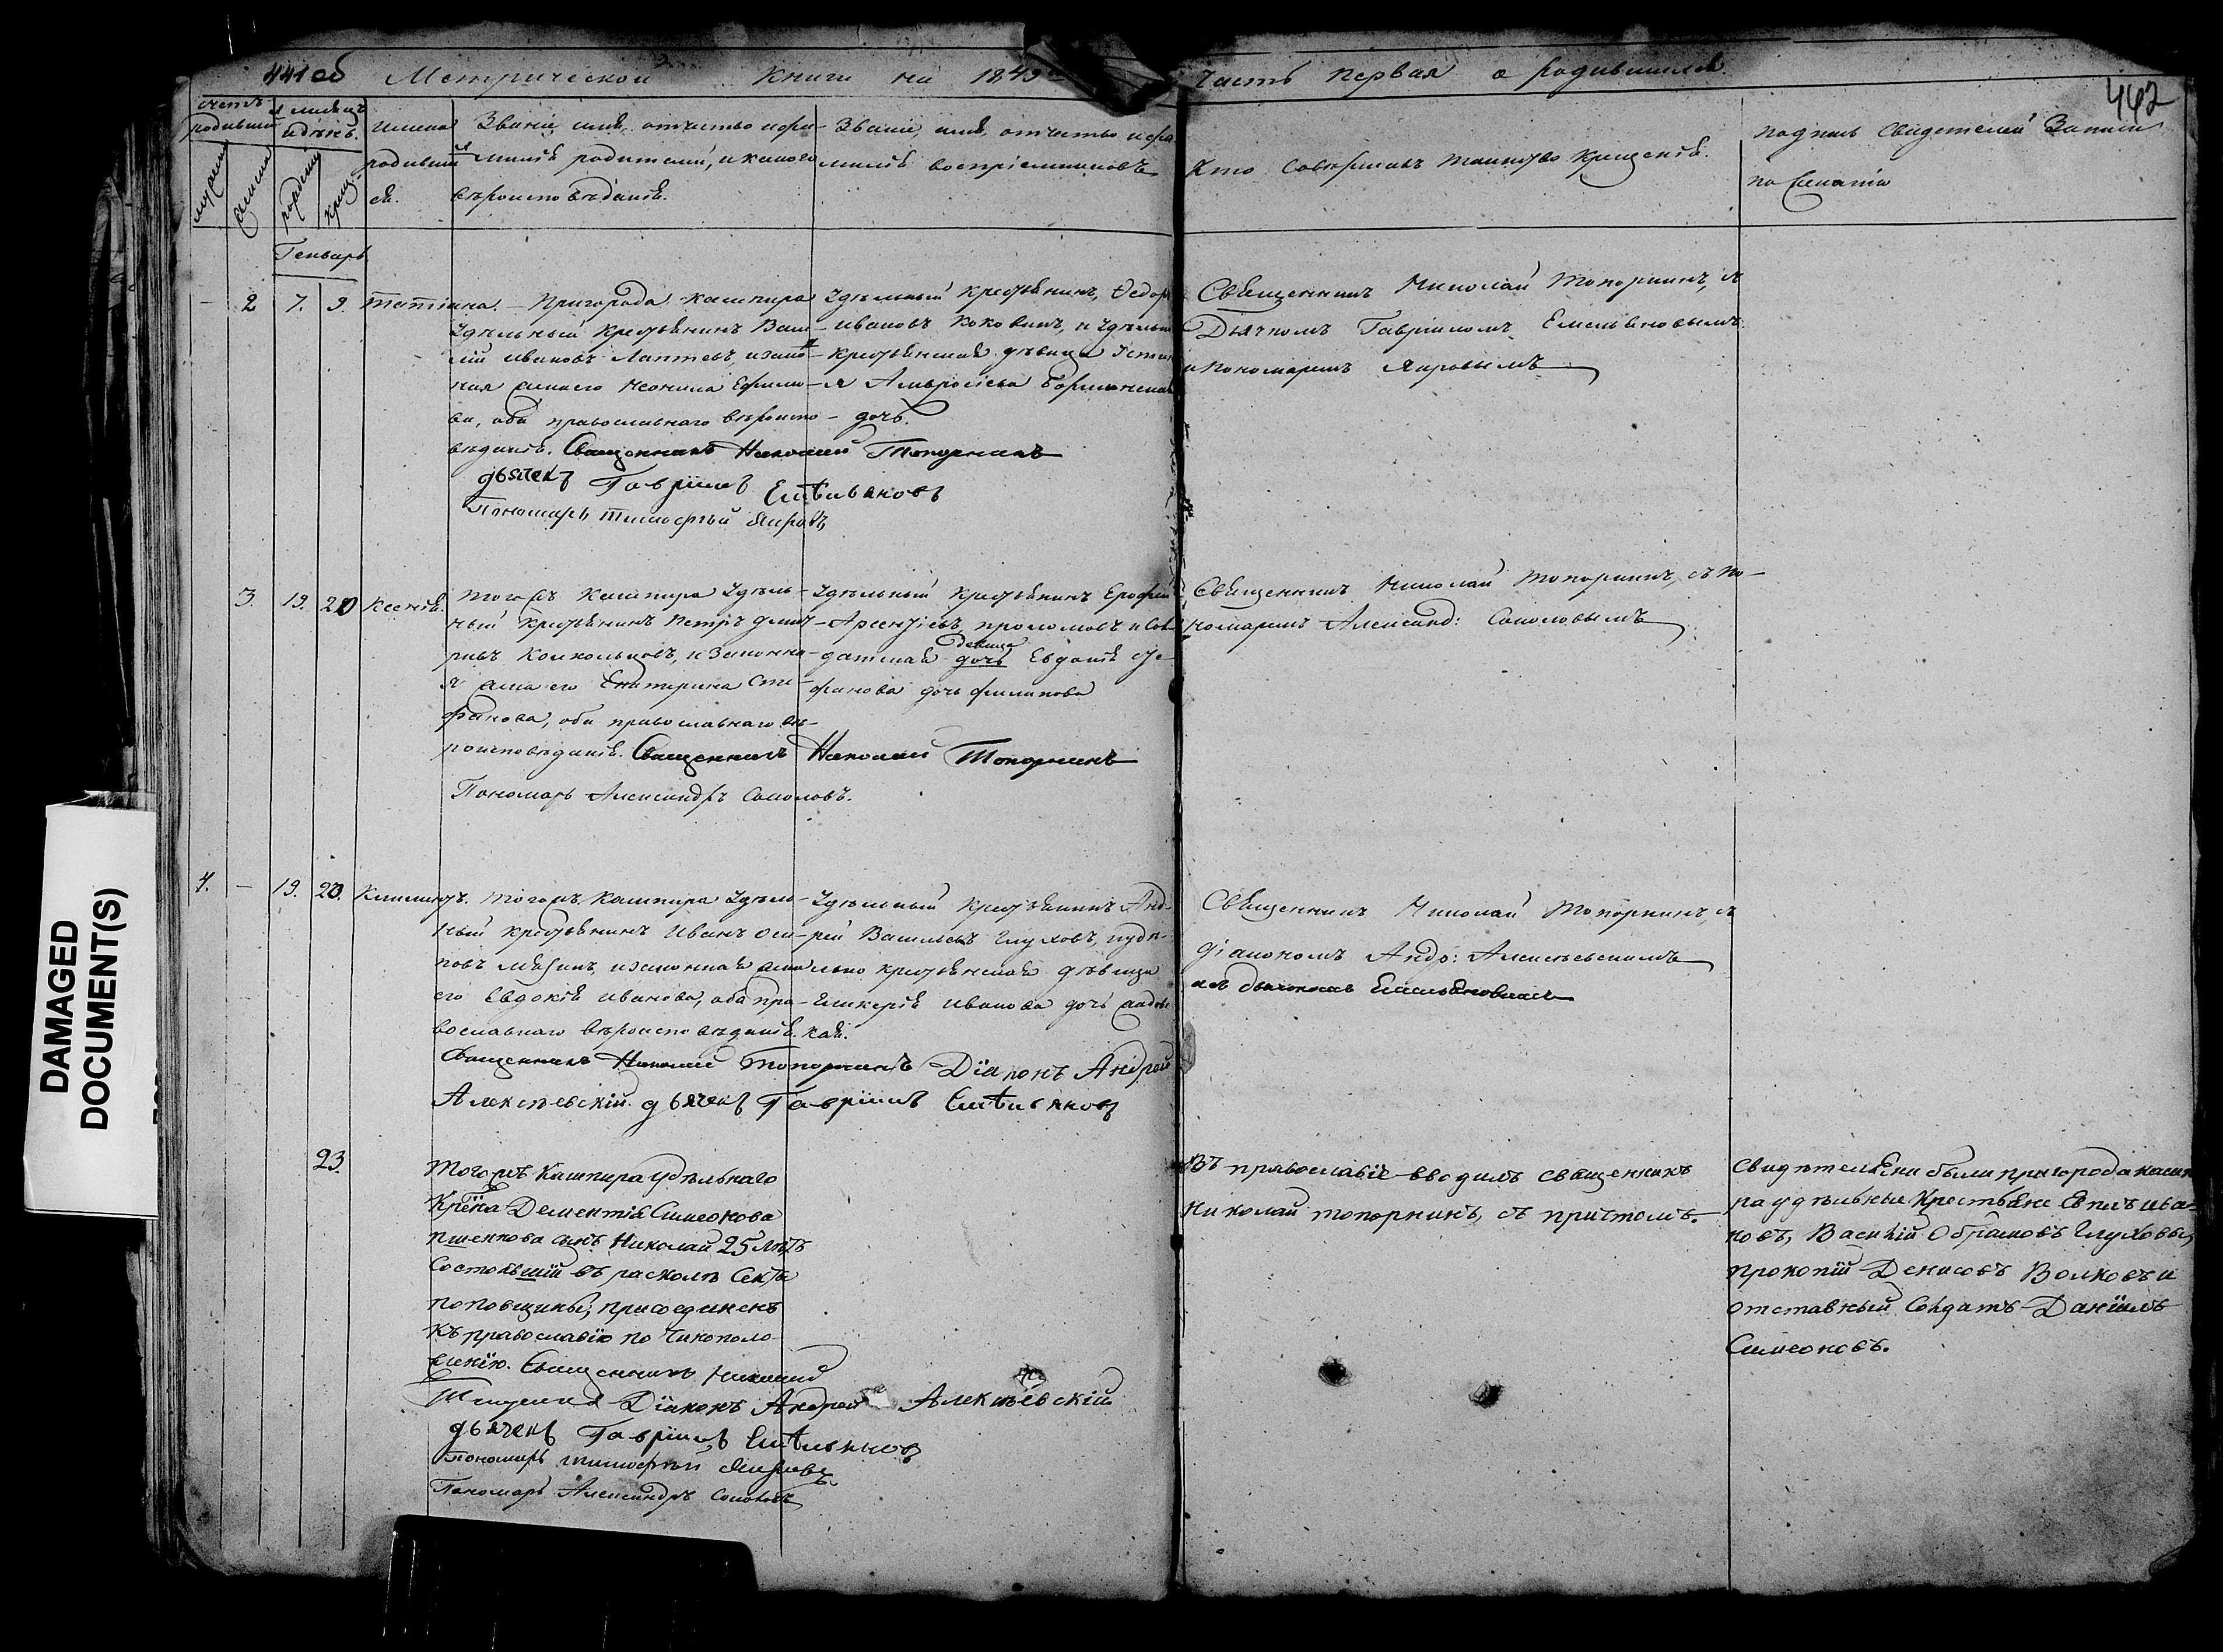 441 об Метрической Книги на 1849 Часть первая о родившихся
442
счетъ родивших
мужеск
женски
месяцъ и день
рожденія
крещ
Имена родившихся.
Званіе, имя, отчество и фамилія родителей, и какого
вѣроисповѣданія.
Званіе, имя, отчество и фамилія воспріемниковъ
Кто Совершалъ таинство Крещенія.
подпись Свидетелей Записи
по желанію
Генварь
- 2 7. 9. Татіана.
Пригорода Кашпира
Удѣльный Крестьянинъ Васи-
лій Ивановъ Лаптевъ, и зако-
ная жена его Неонила Ефимо-
ва, оба православнаго вѣроиспо-
ведания. Священникъ Николай Топорнинъ
дьячекъ Гавріилъ Емѣльяновъ
Пономарь Тимофѣй Яировъ
Удѣльный Крестьянинъ, Ѳедоръ
Ивановъ Коковинъ, и Удѣльн
Крестьянская дѣвица Устин
я Амвросіева
дочь.
Священникъ Николай Топорнинъ, съ
Дьячкомъ Гавріиломъ Емельяновымъ
и Пономаремъ Яировымъ
3. 19. 20 Ксенія.
Тогожъ Кашпира Удѣль-
ный Крестьянинъ Петръ Дмит-
риевъ Колкольцовъ, и Законна-
я жена его Екатерина Сте-
фанова, оба православнаго вѣ-
роисповѣданія. Священникъ Николай Топорнинъ
Пономарь Александръ Соколовъ.
Удѣльный Крестьянинъ Ерофей
Арсентіевъ, проломовъ и Сол
датская девица дочь Евдокія Сте-
фанова дочь филипова
Священникъ Николай Топорнинъ, съ по-
номаремъ Александ: Соколовымъ
4. - 19. 20. Климентъ.
Тогожъ Кашпира Удѣль-
ный крестьянинъ Иванъ Оси-
повъ, и законная жена
его Евдокія Иванова, оба пра-
вославнаго вѣроисповѣданія.
Священникъ Николай Топорнинъ Діаконъ Андрей
Алексѣевскій. дьячекъ Гавріилъ Емѣльяновъ
Удѣльный Крестьянинъ Анд-
рей Васильевъ Глуховъ, и удѣ-
льно крестьянская дѣвица
Гликерія Иванова дочь
кая.
Священникъ Николай Топорнинъ, съ
діакономъ Андр: Алексѣевскимъ
и съ дьячкомъ Емельяновымъ
23.
Тогожъ Кашпира удѣльнаго
Крѣна Дементія Симеонова
пшенкова сынъ Николай 25 лѣтъ
Состоявшій въ расколѣ Секты
поповщины, присоединенъ
Къ православію по чиноположенію. Священникъ Николай
Топорнинъ Діаконъ Андрей Алексѣевскій
дьячекъ Гавріилъ Емѣльяновъ
Пономарь Тимофѣй Яировъ
Пономарь Александръ Соколовъ
Въ православіе вводилъ священникъ
Николай топорнинъ, съ причтомъ.
Свидѣтелями были пригорода кашпи
ра удѣльные Крестьяне ива-
новъ, Василій Абрамовъ Глуховы,
прокопій Денисовъ Волковъ и
отставный Солдатъ Даніилъ
Симеоновъ.
DAMAGED
DOCUMENT(S)